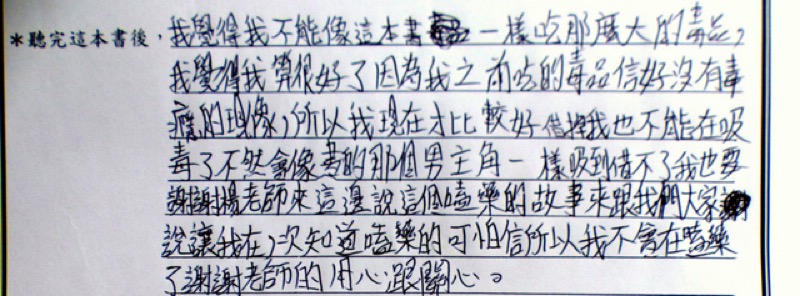 *聽完這本書後，我覺得我不能像這本書一樣吃那麼大的毒品，
我覺得我算很好了因為我之前吃的毒品信好沒有毒
癮的現像，所以我現在才比較好但我也不能在吸
毒了不然會像書的那個男主角一樣吸到借不了我也要
謝謝楊老師來這邊說這個嗑藥的故事來跟我們大家
說讓我在次知道嗑藥的可怕信所以我不會在嗑藥
了謝謝老師的用心跟關心。